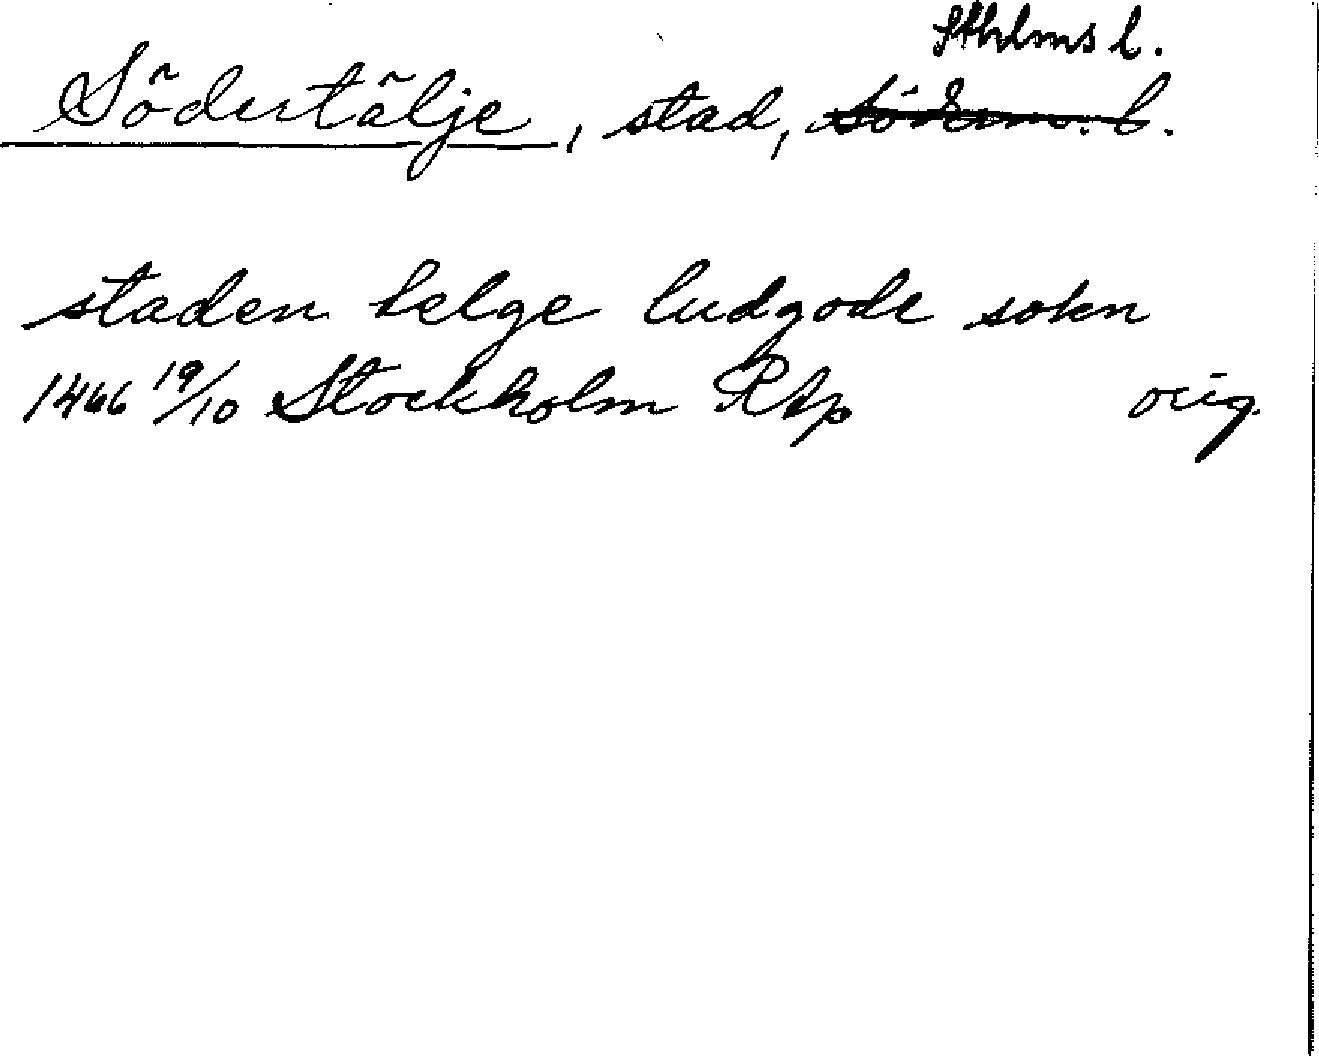 Sthlms l.
Södertälje, stad, Söderm. l.
staden telge ludgode sokn
1466 19/10 Stockholm RAp orig